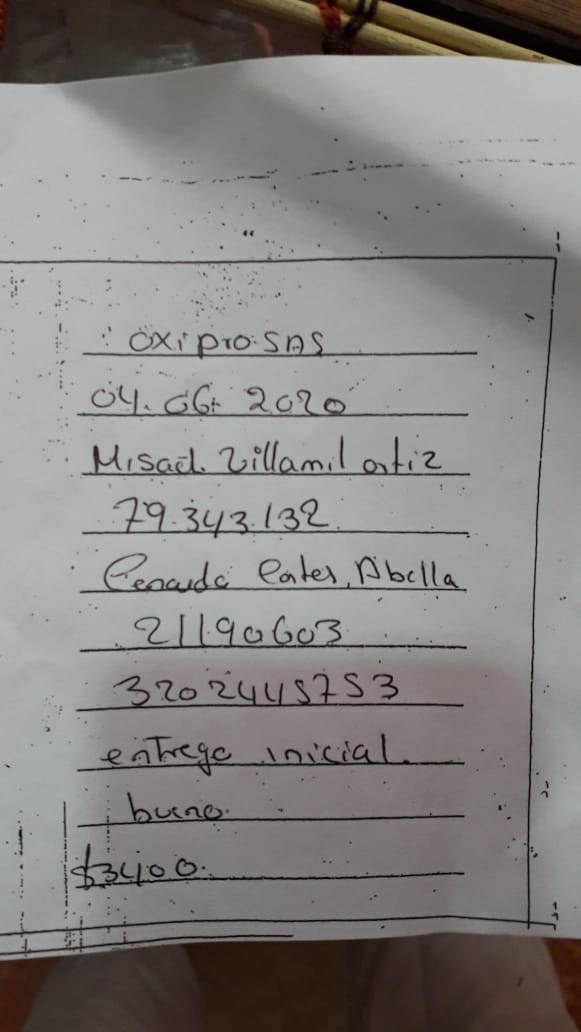 oxipro.SAS
04.06. 2020
Misael. Villamil ortiz
79.343.132
Cortes, Abella
21190603
3202445753
entrega inicial.
bueno.
$3400.